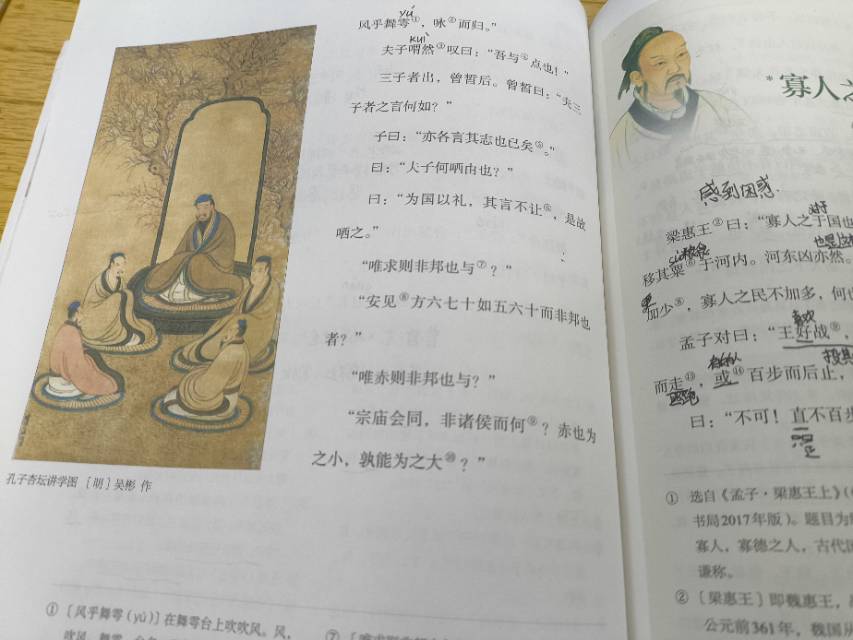 yú
风乎舞雩①，咏②而归。”
kuì
夫子喟然③叹曰：“吾与④点也！”
三子者出，曾皙后。曾皙曰：“夫三
子者之言何如？”
子曰：“亦各言其志也已矣⑤。”
曰：“夫子何哂由也？”
曰：“为国以礼，其言不让⑥，是故
哂之。”
“唯求则非邦也与⑦？”
“安见⑧方六七十如五六十而非邦也
者？”
“唯赤则非邦也与？”
“宗庙会同，非诸侯而何⑨？赤也为
之小，孰能为之大⑩？”
孔子杏坛讲学图 ［明］吴彬 作
①［风乎舞雩（yú）］在舞雩台上吹吹风。风，
*寡人之
感到困惑.
对于
梁惠王②曰：“寡人之于国也
移其粟⑤于河内。河东凶亦然。
加少⑧，寡人之民不加多，何也
喜欢
孟子对曰：“王好战⑨，
而走⑬，或⑭百步而后止，
曰：“不可！直不百步
①选自《孟子·梁惠王上》（
书局2017年版）。题目为
寡人，寡德之人，古代
谦称。
②［梁惠王］即魏惠王，
公元前361年，魏国从